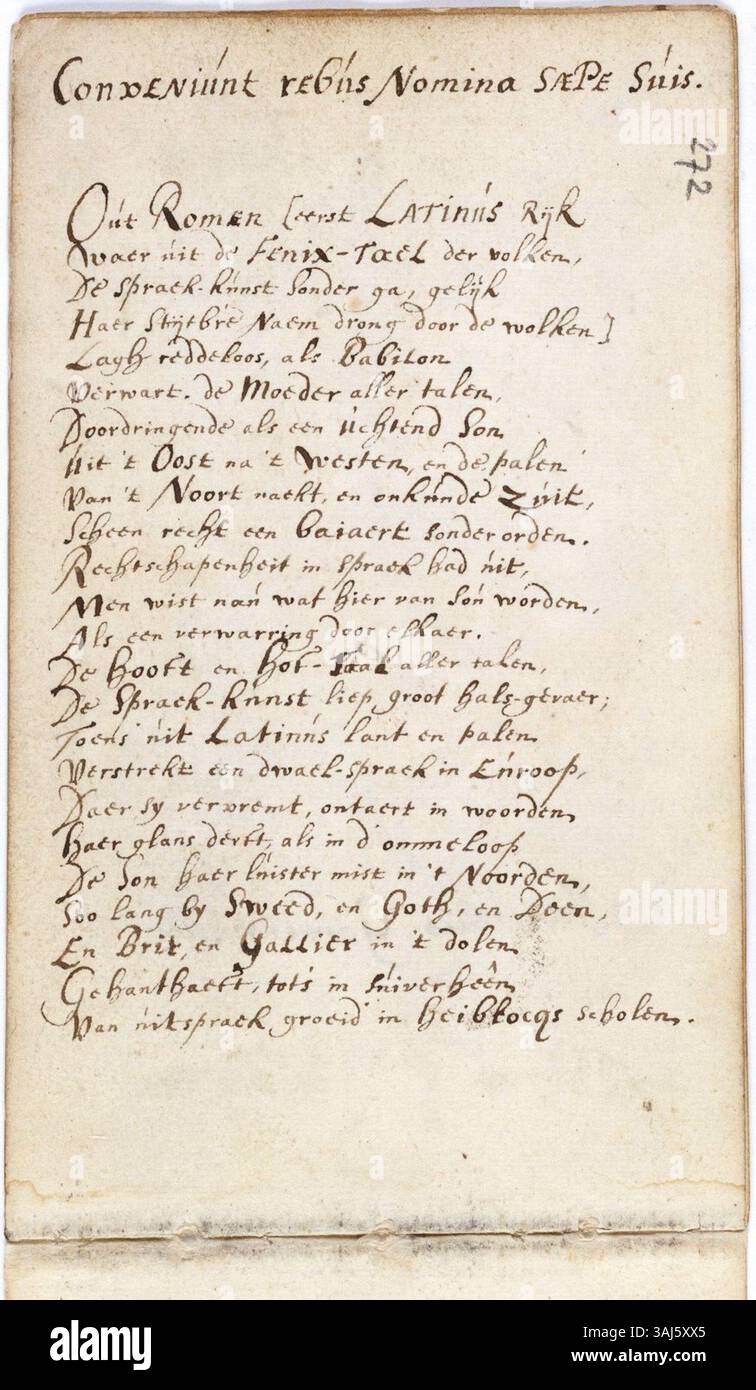 Conveniúnt rebús Nomina SÆPE Súis.
272
Oút Romen [eerst LATINÚS Rijk
Waer úit de Fenix-Tael der volken,
De Spraek-kúnst sonder ga, gelijk
Haer Naem drong door de wolken]
Lagh reddeloos, als Babilon
Verwart. de Moeder aller talen,
Doordringende als een úchtend Son
Úit 't Oost na 't Westen, en de palen
Van 't Noort naekt, en onkúnde Zúit,
Scheen recht een baiaert sonder orden.
Rechtschapenheit in spraek had úit,
Men wist naú wat hier van soú worden,
Als een verwarring door elkaer.
De hooft en hof-taal aller talen,
De Spraek-kúnst liep groot hals-gevaer;
Toens úit Latinús lant en palen
Verstrekt een dwael-spraek in Eúroop,
Daer sy vervremt, ontaert in woorden
haer glans derft, als in d'ommeloop
De Son haer lúister mist in 't Noorden,
Soo lang by Sweed, en Goth, en Deen,
En Brit, en Gallier in 't dolen
Gehanthaeft, tots in súiverheên
Van úitspraek groeid' in heiblocqs scholen.
alamy
Image ID: 2AJ5XX5
www.alamy.com